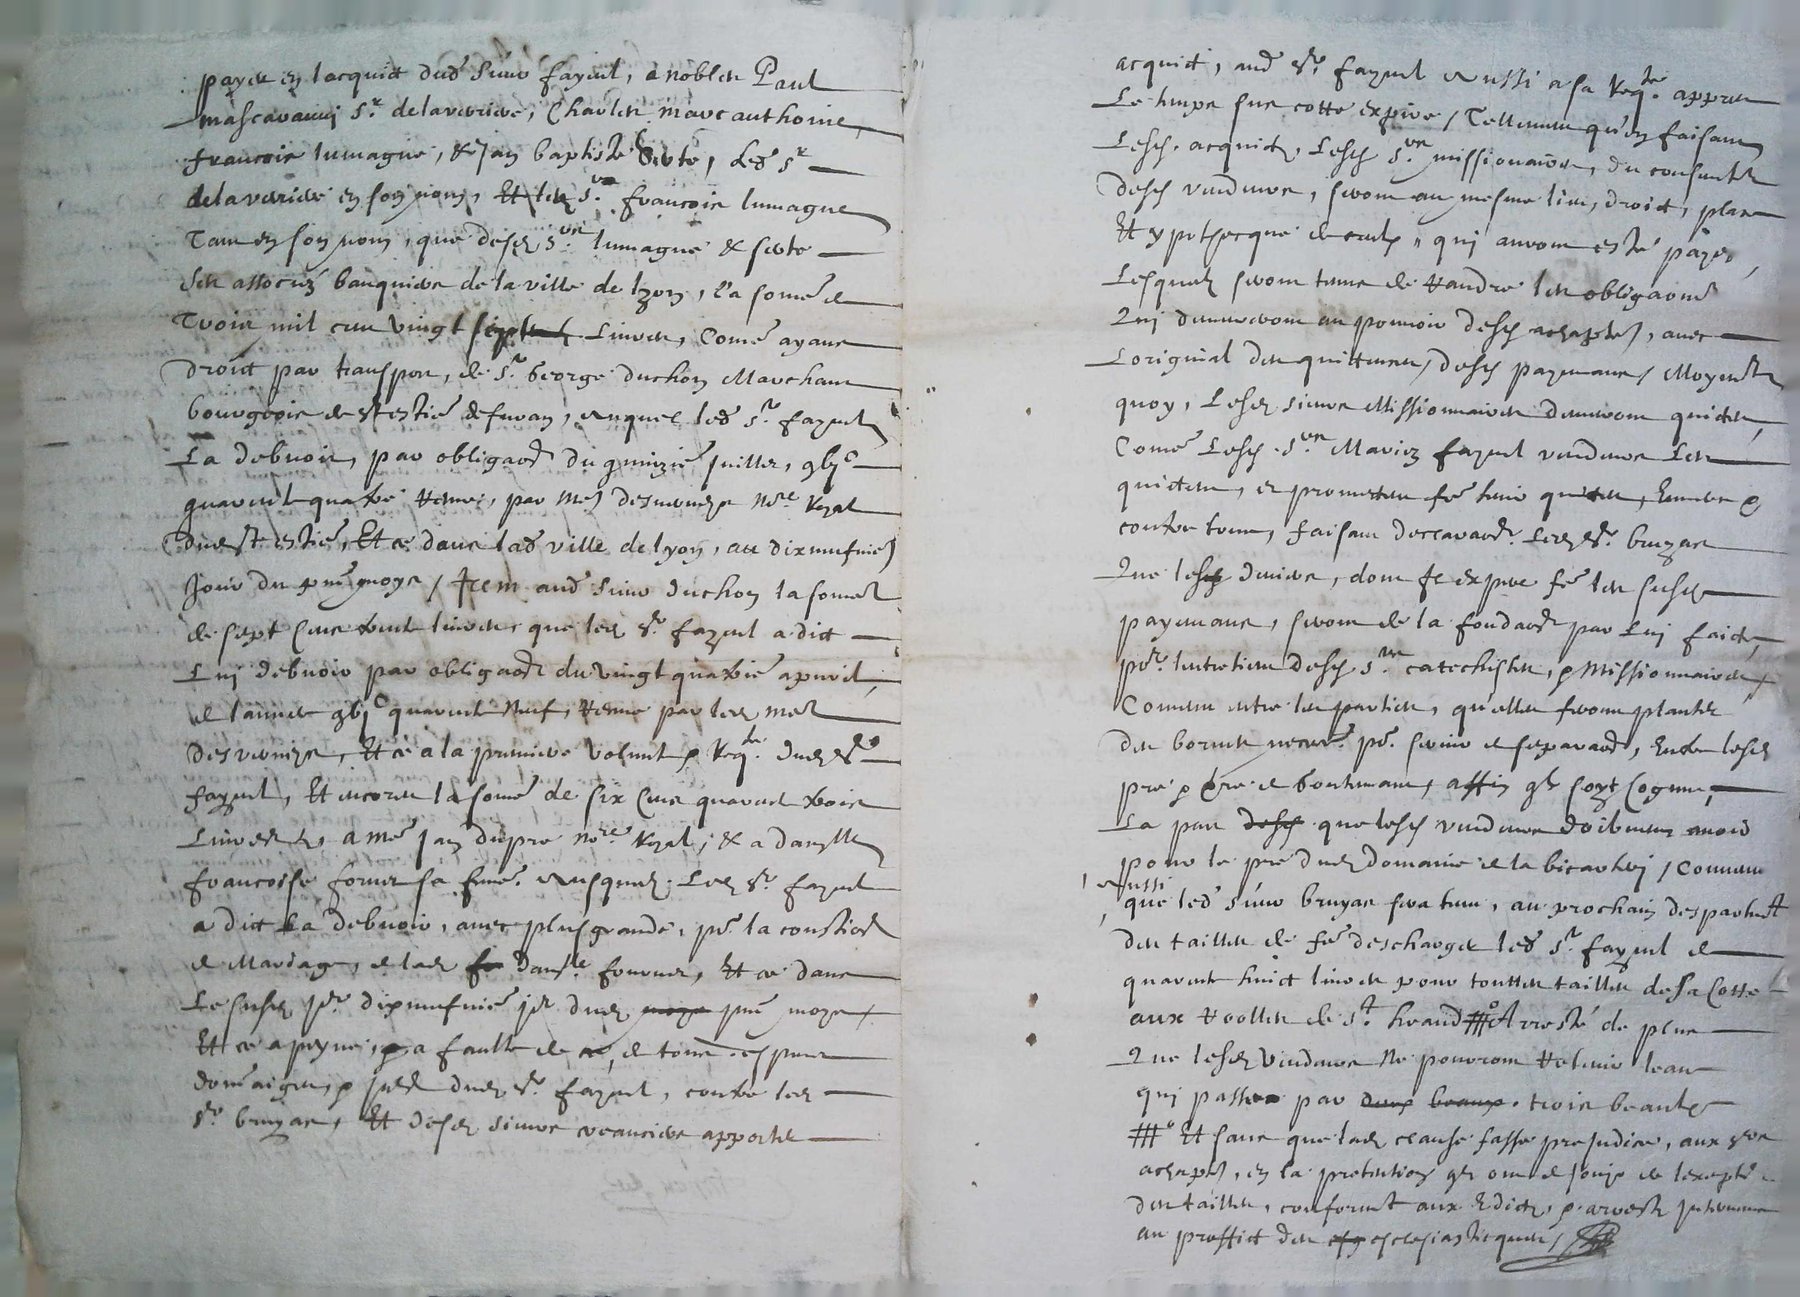 payer en lacquict dud sieur fayeul, a nobles Paul
mascaranni sr de laverriere, Charles marc anthoine,
francois lumague, & Jan baptiste Serte, led sr
de laverriere en son nom, Et led sr francois lumague
Tant en son nom, que desd srs lumague & serte
Ses associez banquiers de la ville de lyon, la some de
Trois mil cent vingt livres, Come ayant
droict par transport, de sr George duchon Marchant
bourgeois de st estie de furan, auquel led sr fayeul
La debvoit, par obligaon du quinzie juillet, gbjc
quarente quatre receue, par Me desverneys nore Royal
dud st estie, Et ce dans lad ville de lyon, au dixneufvie
jour du pnt moys / Item aud sieur duchon la some
de sept cens livres que led sr fayeul a dict
Luy debvoir par obligaon du vingt quatrie apvril,
de lannee gbjc quarente neuf, receue par led me
desverneys, Et ce a la premiere volonte & reqte dud sr
fayeul, Et encores la some de six cens quarente trois
Livres a me Jan dupre nore Royal, & a damlle
francoise fornier sa feme, ausquels led sr fayeul
a dict La debvoir, avec plus grande, pr la constion
de Mariage, de lad damlle fournier, Et ce dans
Le susd jr dixneufvie jr dud pnt moys
Et ce a peyne, a faulte de ce, de tous despens
domaiges, & interestz dud sr fayeul, contre led
sr bruyas, Et desd sieurs creanciers apporter
acquict, aud sr fayeul aussi a sa reqte appres
Le temps sur cotte expire / Tellement qu'en faisant
Lesd. acquictz, Lesd srs missionaires, du consentement
desd vendeurs, seront au mesme lieu, droict, place
Et ypothecque de ceulx, qui auront este payes,
Lesquelz seront tenus de randre les obligaons
Qui demeureront au pouvoir desd achapteurs, avec
Loriginal des quittances, desd payemens / Moyenant
quoy, Lesd sieurs Missionnaires demeureront quictes,
Come Lesd. srs Mariez fayeul vendeurs Les
quictent, et promettent fe tenir quictes, Envers &
contre tous, faisant declaraon Led sr bruyas
Que lesd deniers, dont Il expere fe les susd
payemens, seront de la fondaon par Luy faicte,
pr. lentretien desd. srs catechistes, & Missionnaires
Convenu entre les parties, qu'elles feront planter
des bornes necres pr. servir de separaon, Entre lesd
pre & tre de bontemant, affin qu soyt cognu,
La part que lesd vendeurs doibvent avoir
pour le pre dud domaine de la bicarbej / Convenu
aussi
que led sieur bruyas sera tenu, au prochain despartement
des tailles de fe descharger led sr fayeul de
quarente huict livres pour touttes tailles de sa Cotte
aux roolles de st heand # Arresté de plus
Que lesd vendeurs ne pourront retenir leau
qui passe par deux beaux trois beaulx
# Et sans que lad clause fasse prejudice, aux srs
achaptrs, en la pretention qu ont de jouyr de lexeption
des tailles, conforment aux Edictz, & arrestz intervenus
au proffict des ecclesiasticques /